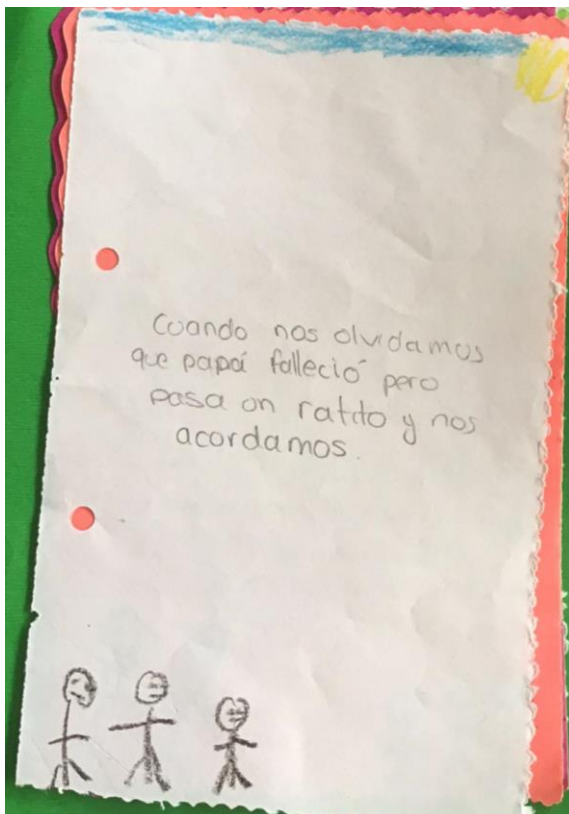 Cuando nos olvidamos
que papá falleció pero
pasa un ratito y nos
acordamos.